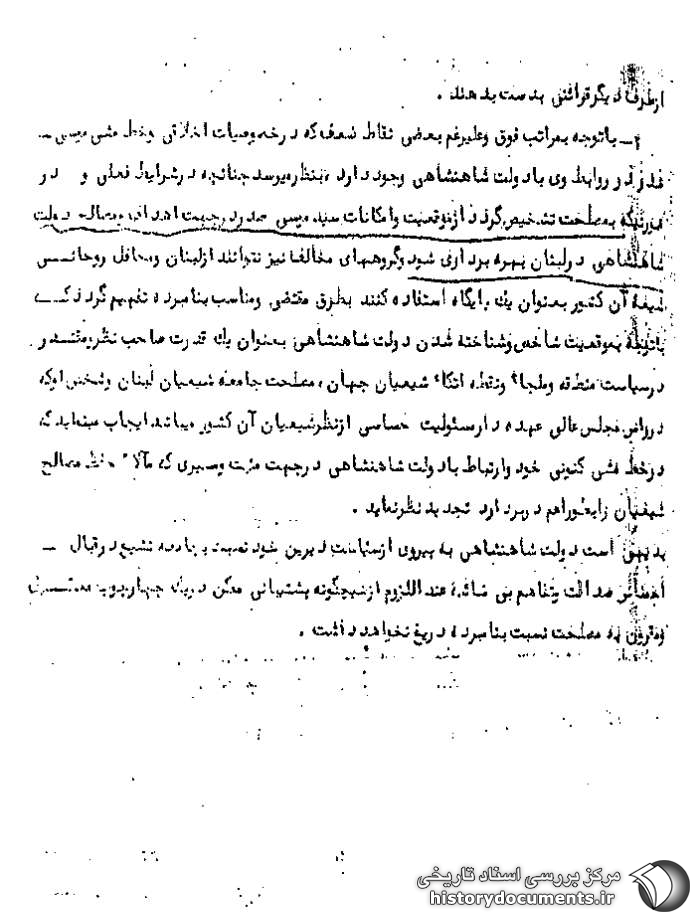 از طرف دیگر قرائنی بدست بدهند .
۴ـ باتوجه بمراتب فوق وعلیرغم بعضی نقاط ضعف که در خصوصیات اخلاقی وخط مشی موسی
صدر در روابط وی با دولت شاهنشاهی وجود دارد ، بنظر میرسد چنانچه در شرایط فعلی و در
صورتیکه بمصلحت تشخیص گردد از موقعیت وامکانات سید موسی صدر در جهت اهداف ومصالح دولت
شاهنشاهی در لبنان بهره برداری شود وگروههای مخالف نیز نتوانند از لبنان ومحافل روحانی
شیعه آن کشور بعنوان یك پایگاه استفاده کنند بطرق مقتضی ومناسب بنامبرده تفهیم گردد که
باتوجه بموقعیت شاخص وشناخته شدن دولت شاهنشاهی بعنوان یك قدرت صاحب نظر ومقتدر
در سیاست منطقه وملجاء ونقطه اتکاء شیعیان جهان ، مصلحت جامعه شیعیان لبنان وشخص او که
در راس مجلس عالی عهده دار مسئولیت حساسی از نظر شیعیان آن کشور میباشد ایجاب مینماید که
در خط مشی کنونی خود وارتباط با دولت شاهنشاهی در جهت مثبت ومسیری که مآلا حفظ مصالح
شیعیان را بطور اهم در بردارد تجدید نظر نماید .
بدیهی است دولت شاهنشاهی به پیروی از سیاست دیرین خود نسبت بجامعه تشیع در قبال
صداقت وتفاهم بی شائبه عند اللزوم از هیچگونه پشتیبانی ممکن در یك چهارچوب
ومقرون به مصلحت نسبت بنامبرده دریغ نخواهد داشت .
مرکز بررسی اسناد تاریخی
historydocuments.ir